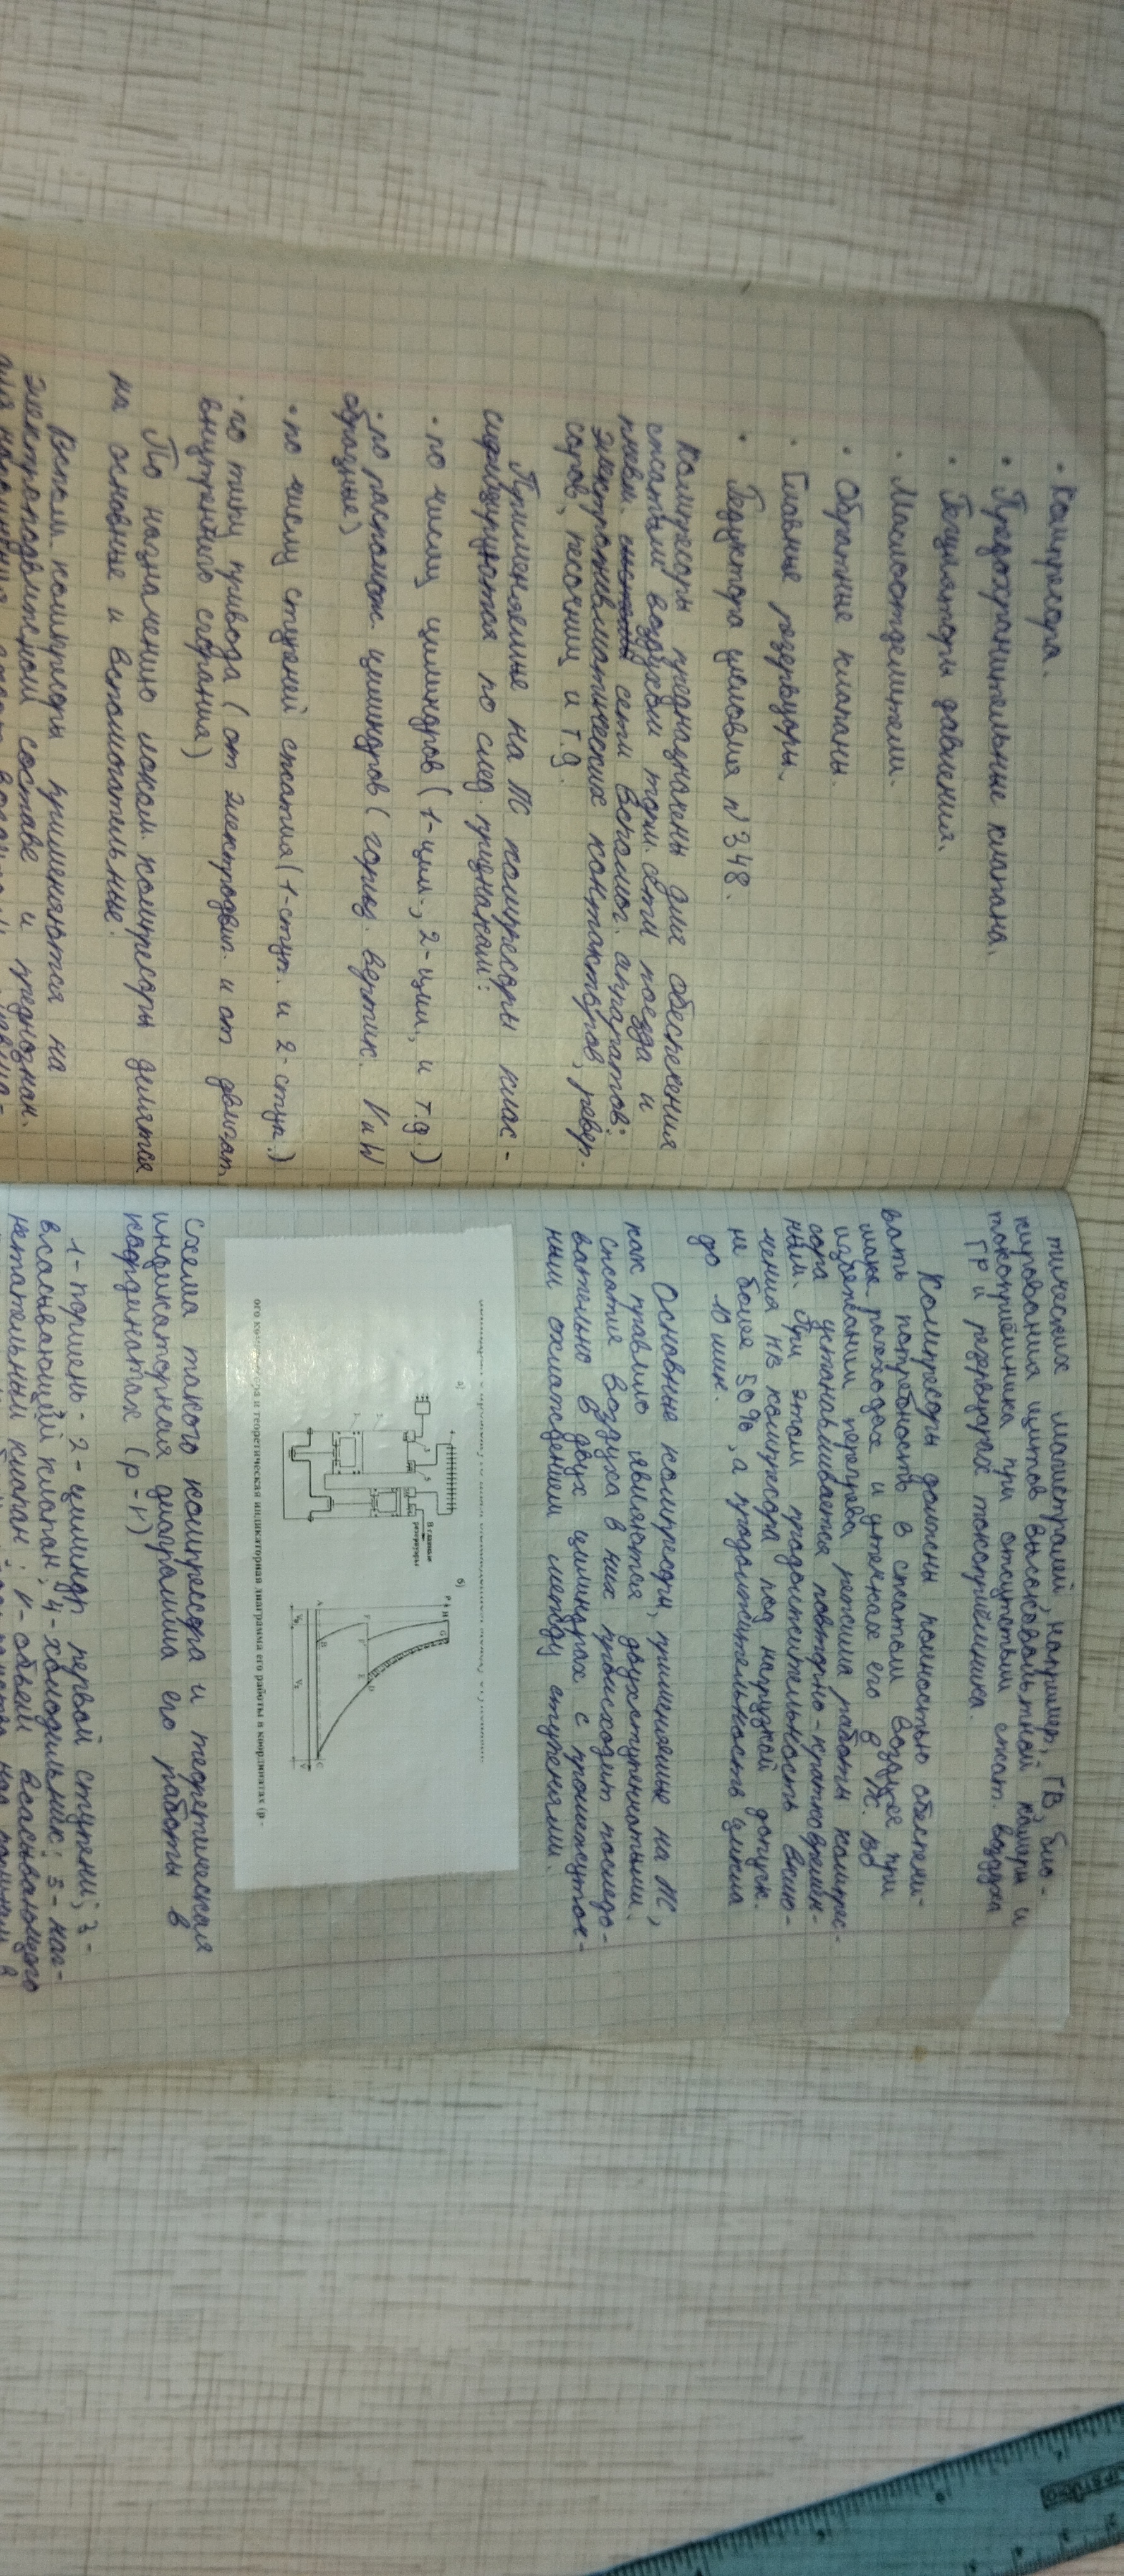 • Компресора.
• Предохранительные клапана.
• Регуляторы давления.
• Маслоотделители.
• Обратные клапаны.
• Главные резервуары.
• Редуктора условия №348.
Компресоры предназначены для обеспечения
сжатым воздухом торм. сти поезда и
пневм. сети вспомог. аппаратов:
электропневматических контакторов, ревер-
соров, песочниц и т.д.
Применяемые на ПС компресоры клас-
сифицируются по след. признакам:
• по числу цилиндров (1-цил., 2-цил., и т.д.)
• по располож. цилиндров (гориз. вертик. V и W
образные)
• по числу ступеней сжатия (1-ступ. и 2-ступ.)
• по типу привода (от электродвиг. и от двигат.
внутреннего сгорания)
По назначению локом. компресоры делятся
на основные и вспомогательные.
Вспом. компресоры применяются на
электроподвижном составе и предназнач.
тических магистралей, например, ГВ, бло-
кирования щитов высоковольтной камеры и
токоприёмника при отсутствии сжат. воздуха
ГР и резервуарах токоприёмника.
Компресоры должны полностью обеспечи-
вать потребность в сжатом воздухе при
макс. расходах и утечках его в ПС. Во
избежании перегрева, режим работы компрес-
сора устанавливается повторно-кратковремен-
ным. При этом продолжительность вклю-
чения ПВ компресора под нагрузкой допуск.
не более 50%, а продолжительность цикла
до 10 мин.
Основные компресоры, применяемые на ПС,
как правило являются двухступенчатыми.
Сжатие воздуха в них происходит последо-
вательно в двух цилиндрах с промежуточ-
ным охлаждением между ступенями.
а)
В главные
резервуары
б)
ого компрессора и теоретическая индикаторная диаграмма его работы в координатах (р -
Схема такого компресора и теоретическая
индикаторная диаграмма его работы в
координатах (p-V)
1-поршень; 2-цилиндр первой ступени; 3-
всасывающий клапан; 4-холодильник; 5-наг-
нетательный клапан; V-объем всасывающего